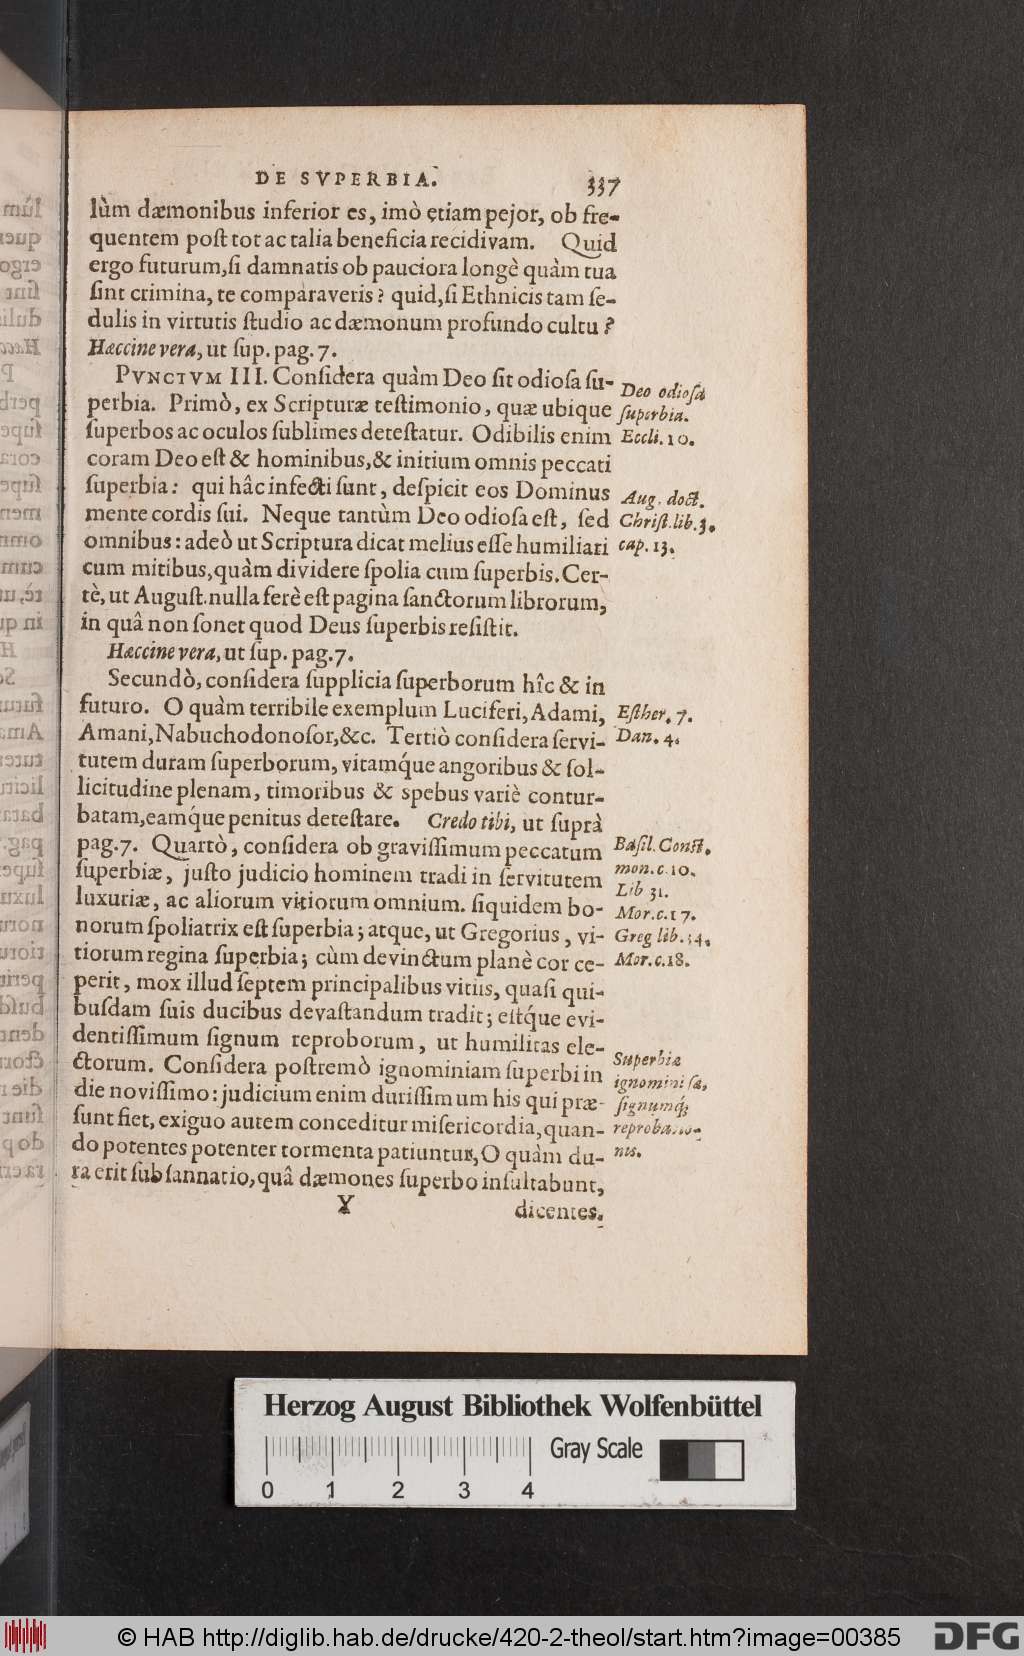 DE SVPERBIA. 337
lùm dæmonibus inferior es, imò etiam pejor, ob fre-
quentem poſt tot ac talia beneficia recidivam. Quid
ergo futurum, ſi damnatis ob pauciora longè quàm tua
ſint crimina, te comparaveris? quid, ſi Ethnicis tam ſe-
dulis in virtutis ſtudio ac dæmonum profundo cultu?
Hæccine vera, ut ſup. pag. 7.
PVNCTVM III. Conſidera quàm Deo ſit odioſa ſu-
perbia. Primò, ex Scripturæ teſtimonio, quæ ubique
ſuperbos ac oculos ſublimes deteſtatur. Odibilis enim
coram Deo eſt & hominibus, & initium omnis peccati
ſuperbia: qui hâc infecti ſunt, deſpicit eos Dominus
mente cordis ſui. Neque tantùm Deo odioſa eſt, ſed
omnibus: adeò ut Scriptura dicat melius eſſe humiliari
cum mitibus, quàm dividere ſpolia cum ſuperbis. Cer-
tè, ut Auguſt. nulla ferè eſt pagina ſanctorum librorum,
in quâ non ſonet quod Deus ſuperbis reſiſtit.
Hæccine vera, ut ſup. pag. 7.
Secundò, conſidera ſupplicia ſuperborum hîc & in
futuro. O quàm terribile exemplum Luciferi, Adami,
Amani, Nabuchodonoſor, &c. Tertiò conſidera ſervi-
tutem duram ſuperborum, vitamq́ue angoribus & ſol-
licitudine plenam, timoribus & spebus variè contur-
batam, eamq́ue penitus deteſtare. Credo tibi, ut ſuprà
pag. 7. Quartò, conſidera ob graviſſimum peccatum
ſuperbiæ, juſto judicio hominem tradi in ſervitutem
luxuriæ, ac aliorum vitiorum omnium. ſiquidem bo-
norum ſpoliatrix eſt ſuperbia; atque, ut Gregorius, vi-
tiorum regina ſuperbia; cùm devinctum planè cor ce-
perit, mox illud ſeptem principalibus vitiis, quaſi qui-
buſdam ſuis ducibus devaſtandum tradit; eſtq́ue evi-
dentiſſimum ſignum reproborum, ut humilitas ele-
ctorum. Conſidera poſtremò ignominiam ſuperbi in
die noviſſimo: judicium enim duriſſimum his qui præ-
ſunt fiet, exiguo autem conceditur miſericordia, quan-
do potentes potenter tormenta patiuntur, O quàm du-
ra erit ſubſannatio, quâ dæmones ſuperbo inſultabunt,
Y dicentes.
Deo odioſa
ſuperbia.
Eccli. 10.
Aug. doct.
Chriſt. lib. 3.
cap. 13.
Eſther. 7.
Dan. 4.
Baſil. Conſt.
mon. c. 10.
Lib 31.
Mor. c. 17.
Greg lib. 34.
Mor. c. 18.
Superbia
ſignumq́;
nis.
Herzog August Bibliothek Wolfenbüttel
Gray Scale
0 1 2 3 4
© HAB http://diglib.hab.de/drucke/420-2-theol/start.htm?image=00385
DFG